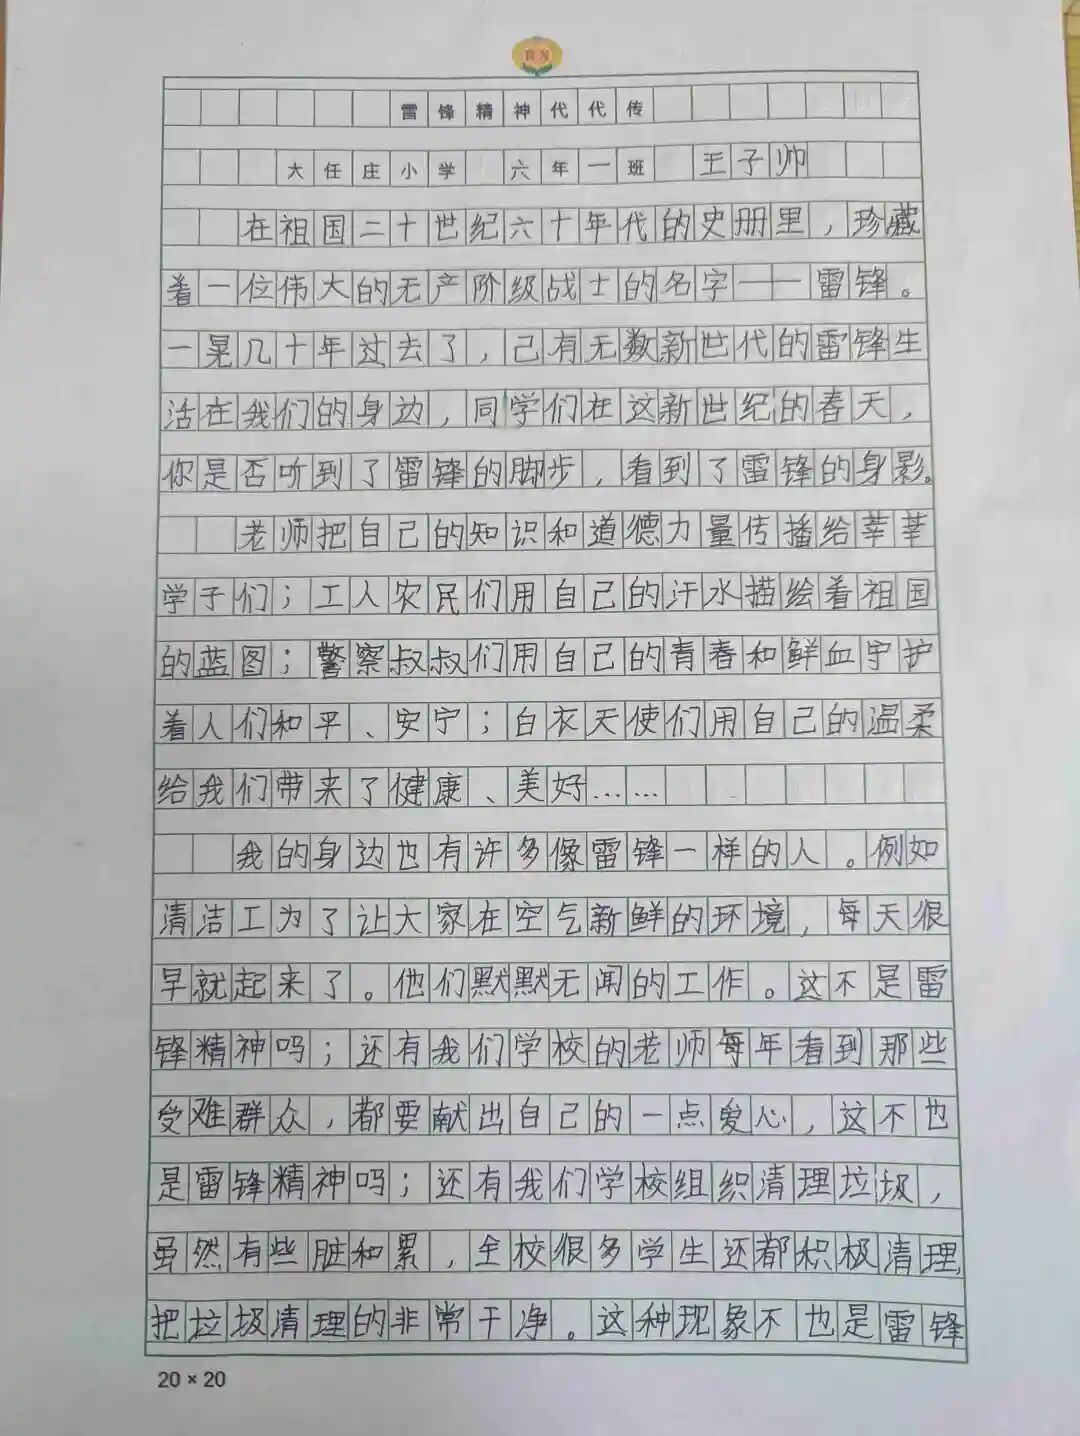 RN
雷锋精神代代传
大任庄小学 六年一班 王子帅
在祖国二十世纪六十年代的史册里，珍藏
着一位伟大的无产阶级战士的名字——雷锋。
一晃几十年过去了，己有无数新世代的雷锋生
活在我们的身边，同学们在这新世纪的春天，
你是否听到了雷锋的脚步，看到了雷锋的身影。
老师把自己的知识和道德力量传播给莘莘
学子们；工人农民们用自己的汗水描绘着祖国
的蓝图；警察叔叔们用自己的青春和鲜血守护
着人们和平、安宁；白衣天使们用自己的温柔
给我们带来了健康、美好……
我的身边也有许多像雷锋一样的人。例如
清洁工为了让大家在空气新鲜的环境，每天很
早就起来了。他们默默无闻的工作。这不是雷
锋精神吗；还有我们学校的老师每年看到那些
受难群众，都要献出自己的一点爱心，这不也
是雷锋精神吗；还有我们学校组织清理垃圾，
虽然有些脏和累，全校很多学生还都积极清理，
把垃圾清理的非常干净。这种现象不也是雷锋
20×20